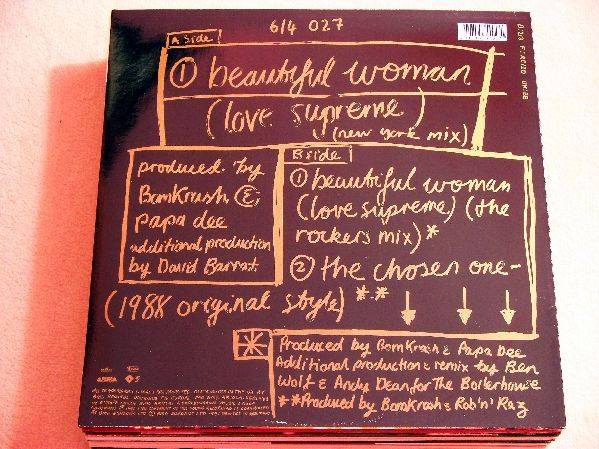 614 027
A side
① beautiful woman
(love supreme)
(new york mix)
produced by
BomKrash &
Papa dee
additional production
by David Barrat
B side
① beautiful woman
(love supreme) (the
rockers mix)*
② the chosen one-
(1988 original style) **
* Produced by BomKrash & Papa Dee
Additional production & remix by Ben
Wolf & Andy Dean, for The Boilerhouse
**Produced by BomKrash & Rob'n'Raz